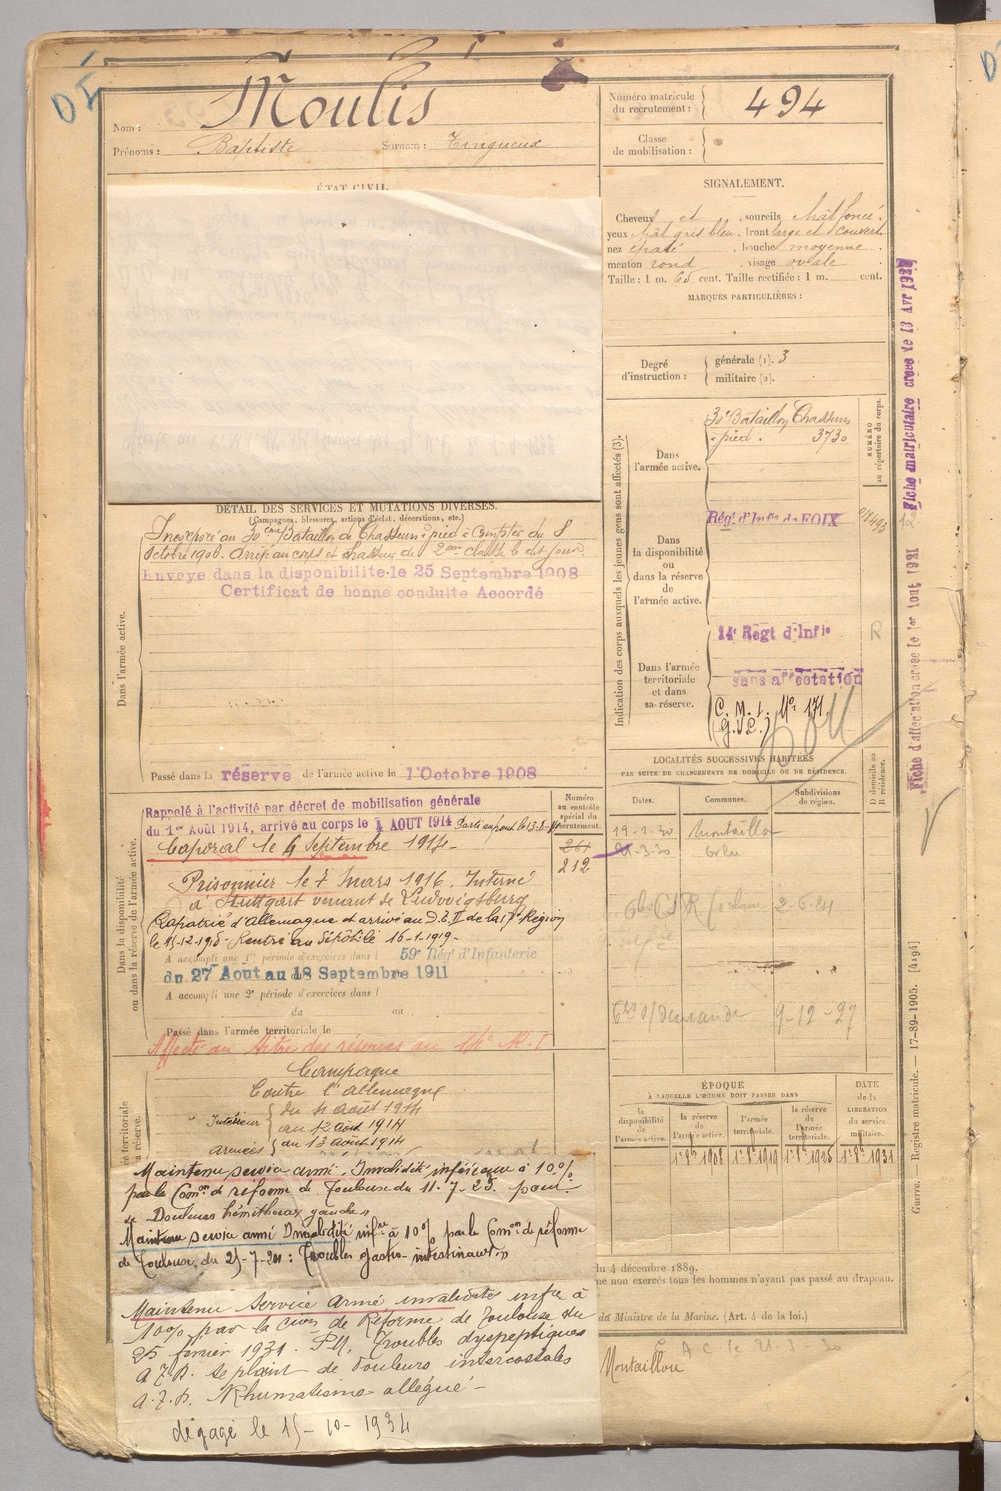 Moulis
Nom :
Prénoms : Baptiste Surnom : Tingueux
Numéro matricule
du recrutement : 494
Classe
de mobilisation :
ÉTAT CIVIL.
SIGNALEMENT.
Cheveux et sourcils chât foncé.
yeux chât gris bleu. front large et couvert
nez épaté bouche moyenne
menton rond visage ovale
Taille : 1 m. 60 cent. Taille rectifiée : 1 m. cent.
MARQUES PARTICULIÈRES :
Degré
d'instruction :
générale (1). 3
militaire (2).
Indication des corps auxquels les jeunes gens sont affectés (3).
NUMÉRO
au répertoire du corps.
Dans
l'armée active.
30e Bataillon Chasseurs
à pied. 3730
Dans
la disponibilité
ou
dans la réserve
de
l'armée active.
Régt d'Infie de FOIX
Dans l'armée
territoriale
et dans
sa réserve.
14e Régt d'Infie
R
sans affectation
C. M. I. No 171.
(G.V.C.)
Fiche matriculaire créée le 13 Avr 1927
Fiche d'affectation créée le 1er Aout 1921
DÉTAIL DES SERVICES ET MUTATIONS DIVERSES.
(Campagnes, blessures, actions d'éclat, décorations, etc.)
Dans l'armée active.
Incorporé au 30eme Bataillon de Chasseurs à pied à compter du 8
octobre 1906. Arrivé au corps et chasseur de 2eme classe le dit jour
Envoyé dans la disponibilité le 25 Septembre 1908
Certificat de bonne conduite Accordé
Passé dans la réserve de l'armée active le 1 Octobre 1908
Dans la disponibilité
ou dans la réserve de l'armée active.
Numéro
au contrôle
spécial du
recrutement.
261
212
Rappelé à l'activité par décret de mobilisation générale
du 1er Août 1914, arrivé au corps le 4 AOUT 1914 Parti au front le 13-8-14
Caporal le 4 Septembre 1914-
Prisonnier le 7 mars 1916. Interné
à Stuttgart venant de Ludwigsburg
Rapatrié d'Allemagne et arrivé au D.E. II de la 17e Région
le 15-12-918- Rentré au Dépôt le 16-1-1919-
A accompli une 1re période d'exercices dans l 59e Rég' d'Infanterie
du 27 Aout au 18 Septembre 1911
A accompli une 2e période d'exercices dans l
du au
Passé dans l'armée territoriale le
Affecté au titre des réserves au 14e R.I
Campagne
Contre l'Allemagne
Intérieur du 4 août 1914
au 12 Août 1914
armées du 13 août 1914
LOCALITÉS SUCCESSIVES HABITÉES
PAR SUITE DE CHANGEMENTS DE DOMICILE OU DE RÉSIDENCE.
Dates.
Communes.
Subdivisions
de région.
D domicile ou
R résidence.
19-1-20 Montaillou
21-3-20 Orlu
2-6-24
9-12-27
ÉPOQUE
À LAQUELLE L'HOMME DOIT PASSER DANS
DATE
de la
LIBÉRATION
du service
militaire.
la
disponibilité
de
l'armée active.
la réserve
de
l'armée active.
l'armée
territoriale.
la réserve
de
l'armée
territoriale.
Maintenu service armé. Invalidité inférieure à 10%
par la Comon de réforme de Toulouse du 11-7-25. pour
Douleurs hémithorax gauche
Maintenu service armé Invalidité infre à 10% par la Comon de réforme
de Toulouse, du
Troubles gastro-intestinaux
Maintenu Service Armé, invalidités infre à
10% par la Cion de Réforme de Toulouse du
25 février 1931. Troubles dyspeptiques
A.J.P. Se plaint de douleurs intercostales
A.J.P. Rhumatisme allégué-
dégagé le 15-10-1934
du 4 décembre 1889.
me non exercés tous les hommes n'ayant pas passé au drapeau.
du Ministre de la Marine. (Art. 4 de la loi.)
Montaillou
Guerre. — Registre matricule. — 17-89-1905. [4194]